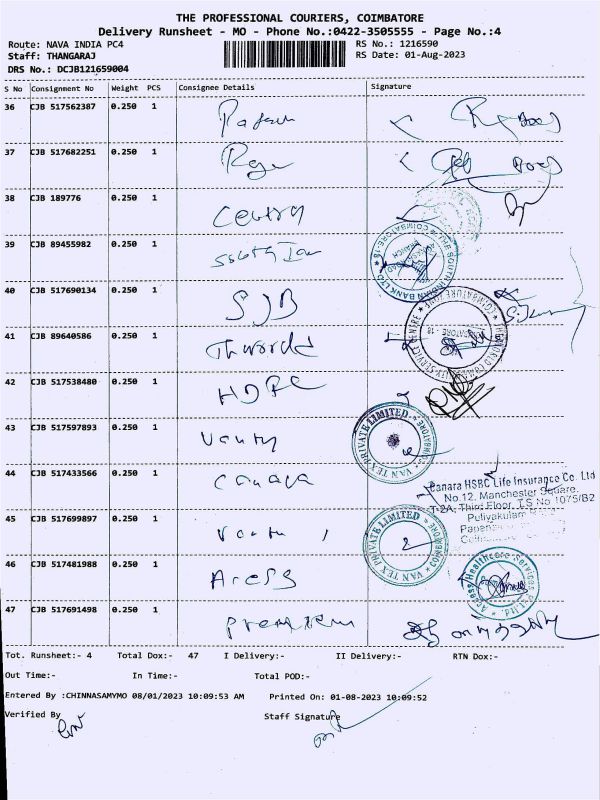 THE PROFESSIONAL COURIERS, COIMBATORE
Delivery Runsheet - MO - Phone No.:0422-3505555 - Page No.:4
Route: NAVA INDIA PC4 RS No.: 1216590
Staff: THANGARAJ RS Date: 01-Aug-2023
DRS No.: DCJB121659004
S No Consignment No Weight PCS Consignee Details Signature
36 CJB 517562387 0.250 1
37 CJB 517682251 0.250 1
38 CJB 189776 0.250 1
39 CJB 89455982 0.250 1
SOUTH INDIAN BANK LTD
COIMBATORE-18
40 CJB 517690134 0.250 1 SJB
41 CJB 89640586 0.250 1
42 CJB 517538480 0.250 1 HDFC
43 CJB 517597893 0.250 1
VAN TEX PRIVATE LIMITED COIMBATORE
44 CJB 517433566 0.250 1 Canara
Canara HSBC Life Insurance Co. Ltd
No.12, Manchester Square,
T-2A, Third Floor, T.S No 1075/B2
Puliyakulam
45 CJB 517699897 0.250 1
VAN TEX PRIVATE LIMITED COIMBATORE
46 CJB 517481988 0.250 1
Access Healthcare Services Pvt.Ltd.
47 CJB 517691498 0.250 1
Tot. Runsheet:- 4 Total Dox:- 47 I Delivery:- II Delivery:- RTN Dox:-
Out Time:- In Time:- Total POD:-
Entered By :CHINNASAMYMO 08/01/2023 10:09:53 AM Printed On: 01-08-2023 10:09:52
Verified By Staff Signature